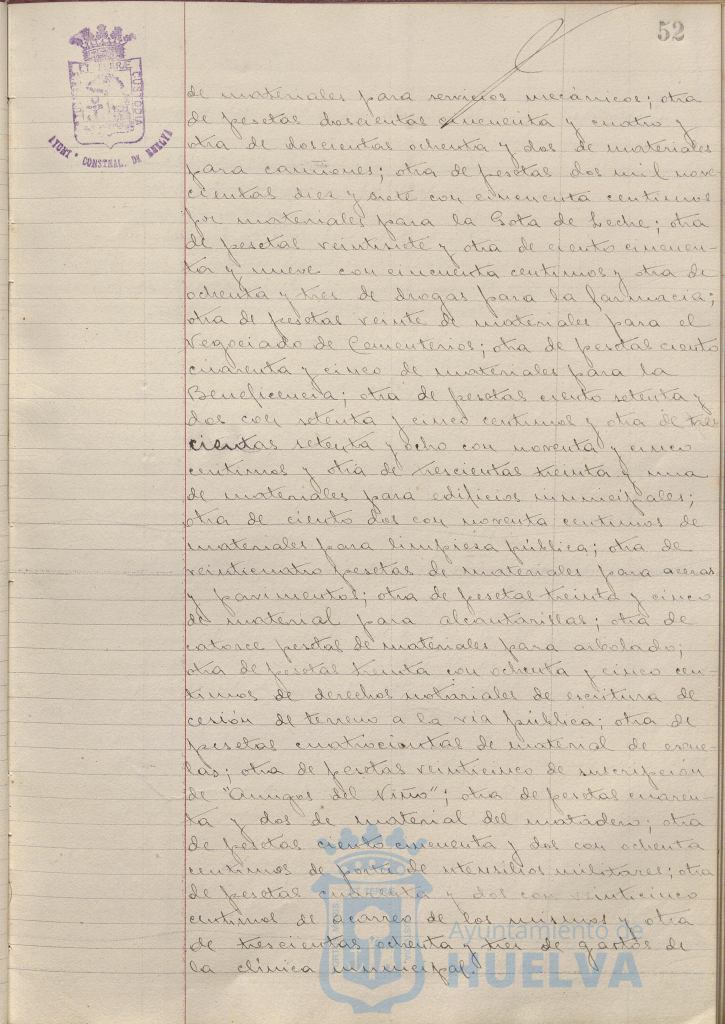 52
PORTUS MARIS ET TERRE CUSTODIA
AYUNT. CONSTNAL. DE HUELVA
de materiales para servicios mecánicos; otra
de pesetas doscientas cincuenta y cuatro y
otra de doscientas ochenta y dos de materiales
para camiones; otra de pesetas dos mil nove-
cientas diez y siete con cincuenta centimos
por materiales para la Gota de Leche; otra
de pesetas veintisiete y otra de ciento cincuen-
ta y nueve con cincuenta centimos y otra de
ochenta y tres de drogas para la farmacia;
otra de pesetas veinte de materiales para el
Negociado de Cementerios; otra de pesetas ciento
cuarenta y cinco de materiales para la
Beneficencia; otra de pesetas ciento setenta y
dos con setenta y cinco centimos y otra de tres
cientas setenta y ocho con noventa y cinco
centimos y otra de trescientas treinta y una
de materiales para edificios municipales;
otra de ciento dos con noventa centimos de
materiales para limpiesa pública; otra de
veinticuatro pesetas de materiales para aceras
y pavimentos; otra de pesetas treinta y cinco
de material para alcantarillas; otra de
catorce pesetas de materiales para arbolado;
otra de pesetas treinta con ochenta y cinco cen-
timos de derechos notariales de escritura de
cesión de terreno a la via pública; otra de
pesetas cuatrocientas de material de escue-
las; otra de pesetas veinticinco de suscripción
de "Amigos del Niño"; otra de pesetas cuaren-
ta y dos de material del matadero; otra
de pesetas ciento cincuenta y dos con ochenta
centimos de porte de utensilios militares; otra
de pesetas cincuenta y dos con veinticinco
centimos de acarreo de los mismos y otra
de trescientas ochenta y tres de gastos de
la clínica municipal.
Ayuntamiento de
HUELVA